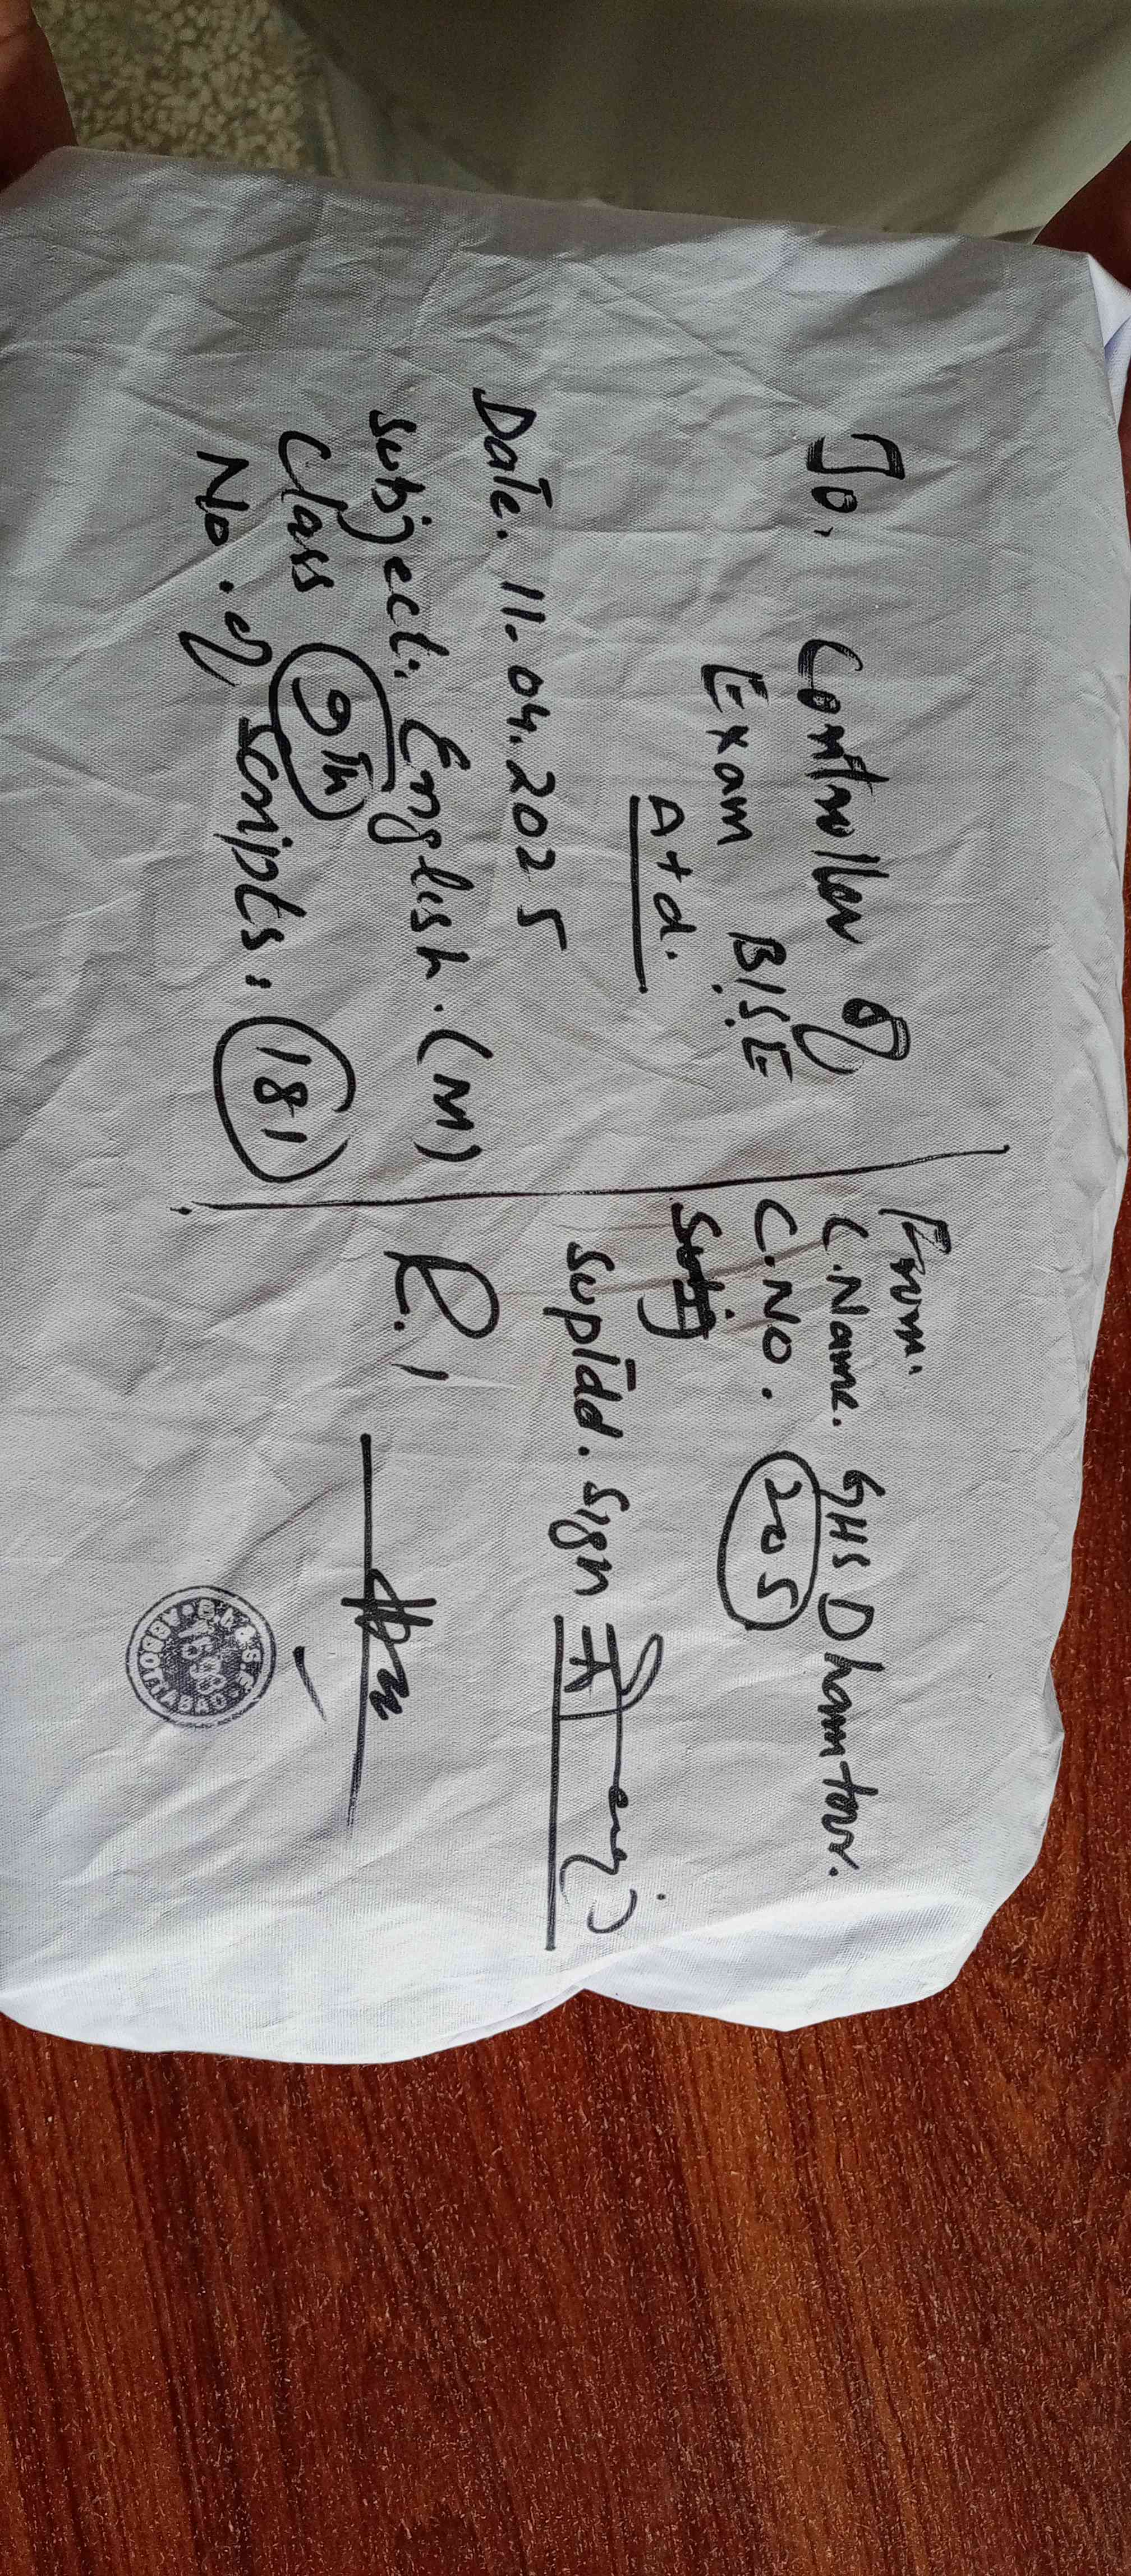 To, Controller of
Exam B.I.S.E
A+d.
Date. 11.04.2025
Subject: English. (M)
Class 9th
No. of scripts: 181
From.
C.Name. GHS Dhamtour.
C.NO. 205
Suptdd. Sign
R.1
B.I.&S.E. ABBOTTABAD